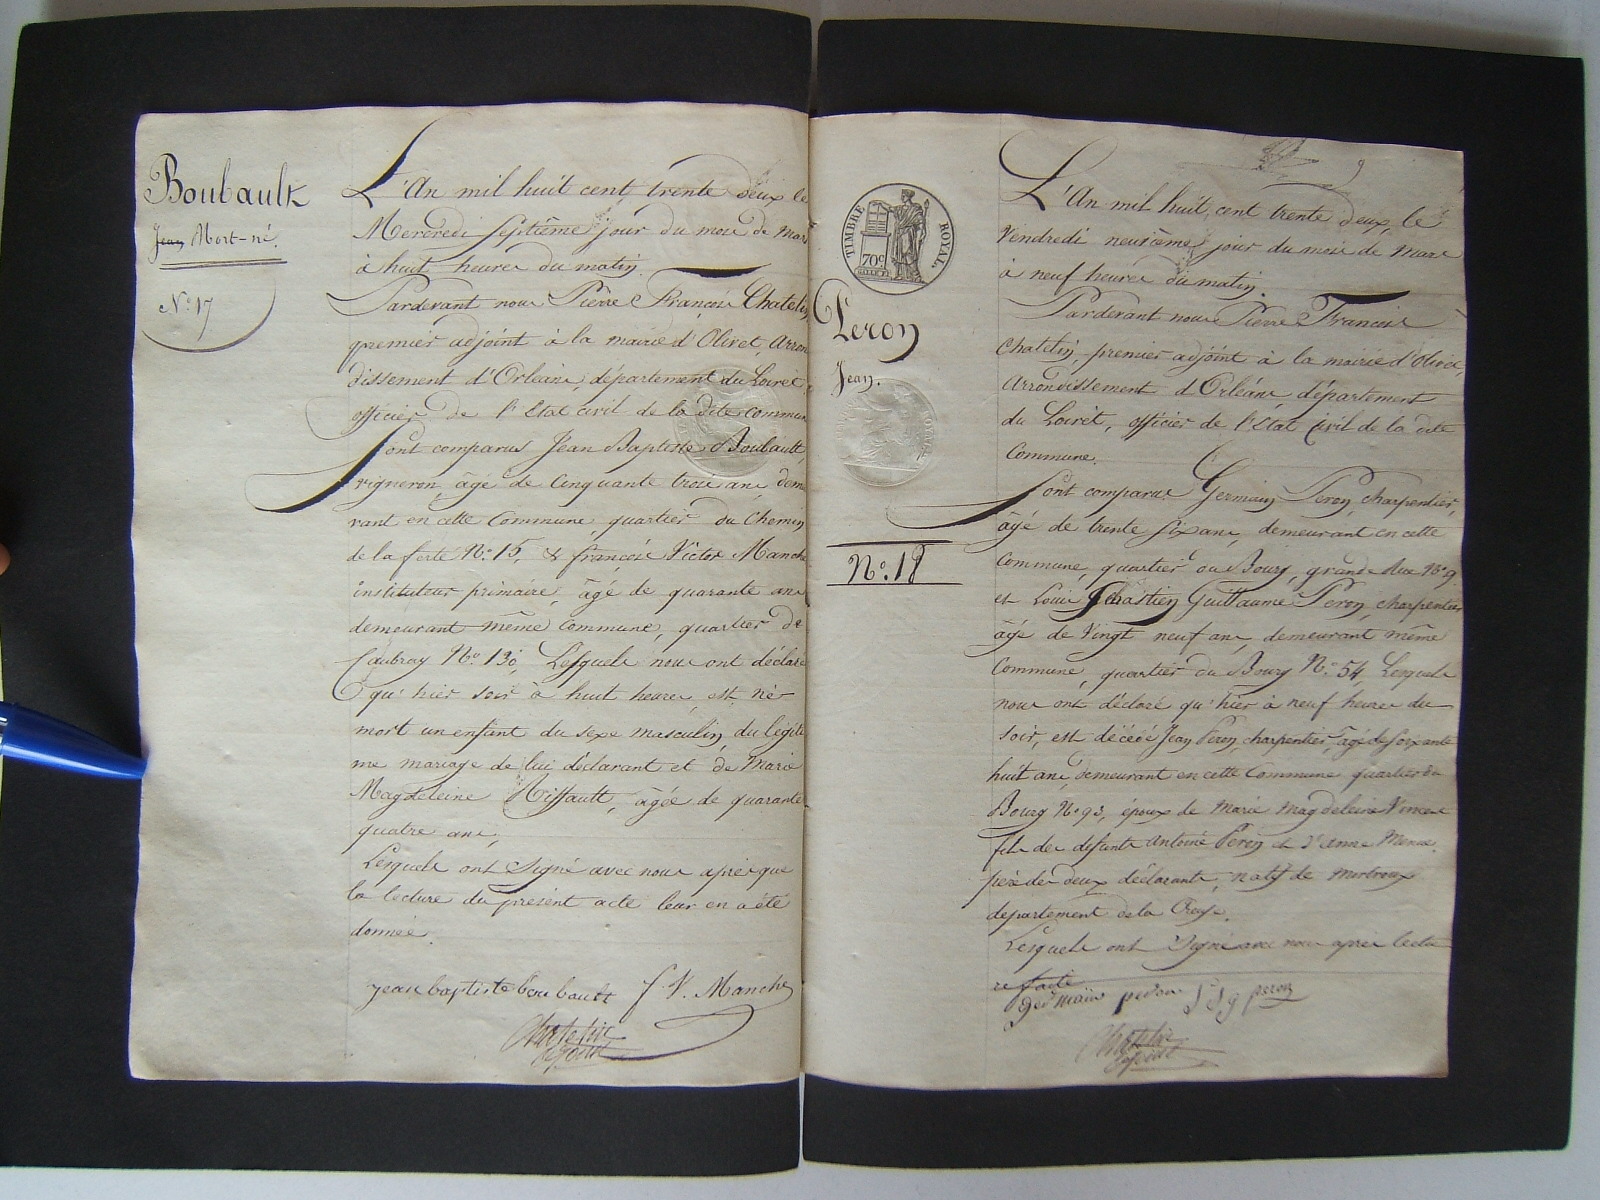 Boubault
Jean Mort-né.
N.º 17
L'An mil huit cent trente deux le
Mercredi Septième jour du mois de mars
à huit heures du matin.
Pardevant nous Pierre François Chatelin
premier adjoint à la mairie d'Olivet, Arron
dissement d'Orléans, département du Loiret,
officier de l'Etat civil de la dite commune
Sont comparus Jean Baptiste Boubault,
vigneron, âgé de Cinquante trois ans, demeu
rant en cette Commune, quartier du Chemin
de la ferté N.º 15, & françois Victor Manche
instituteur primaire, âgé de quarante ans
demeurant même Commune, quartier de
Caubray N.º 130, Lesquels nous ont déclaré
qu'hier soir à huit heures, est né
mort un enfant du sexe masculin du légiti
me mariage de lui déclarant et de Marie
Magdeleine Hissault, âgée de quarante
quatre ans,
Lesquels ont Signé avec nous après que
la lecture du présent acte leur en a été
donnée.
jean baptiste boubault F. V. Manche
Chatelin
adjoint
9
TIMBRE ROYAL.
70c
Peron
Jean.
N.º 18
L'An mil huit cent trente deux, le
Vendredi neuvième jour du mois de Mars
à neuf heures du matin.
Pardevant nous Pierre François
Chatelin, premier adjoint à la mairie d'Olivet,
Arrondissement d'Orléans département
du Loiret, officier de l'Etat Civil de la dite
Commune.
Sont comparus Germain Peron, charpentier,
âgé de trente six ans, demeurant en cette
Commune, quartier du Bourg, grande Rue N.º 9
et Louis Sébastien Guillaume Peron, charpentier
âgé de Vingt neuf ans, demeurant même
Commune, quartier du Bourg N.º 54, Lesquels
nous ont déclaré qu'hier à neuf heures du
soir, est décédé Jean Peron, charpentier, âgé de soixante
huit ans, demeurant en cette Commune quartier du
Bourg N.º 93, époux de Marie Magdeleine Vincent
fils des défunts Antoine Peron et Anne
père des deux déclarants, natif de
département de la Creuse.
Lesquels ont Signé avec nous après lectu
re faite
germain peron L S g peron
Chatelin
adjoint